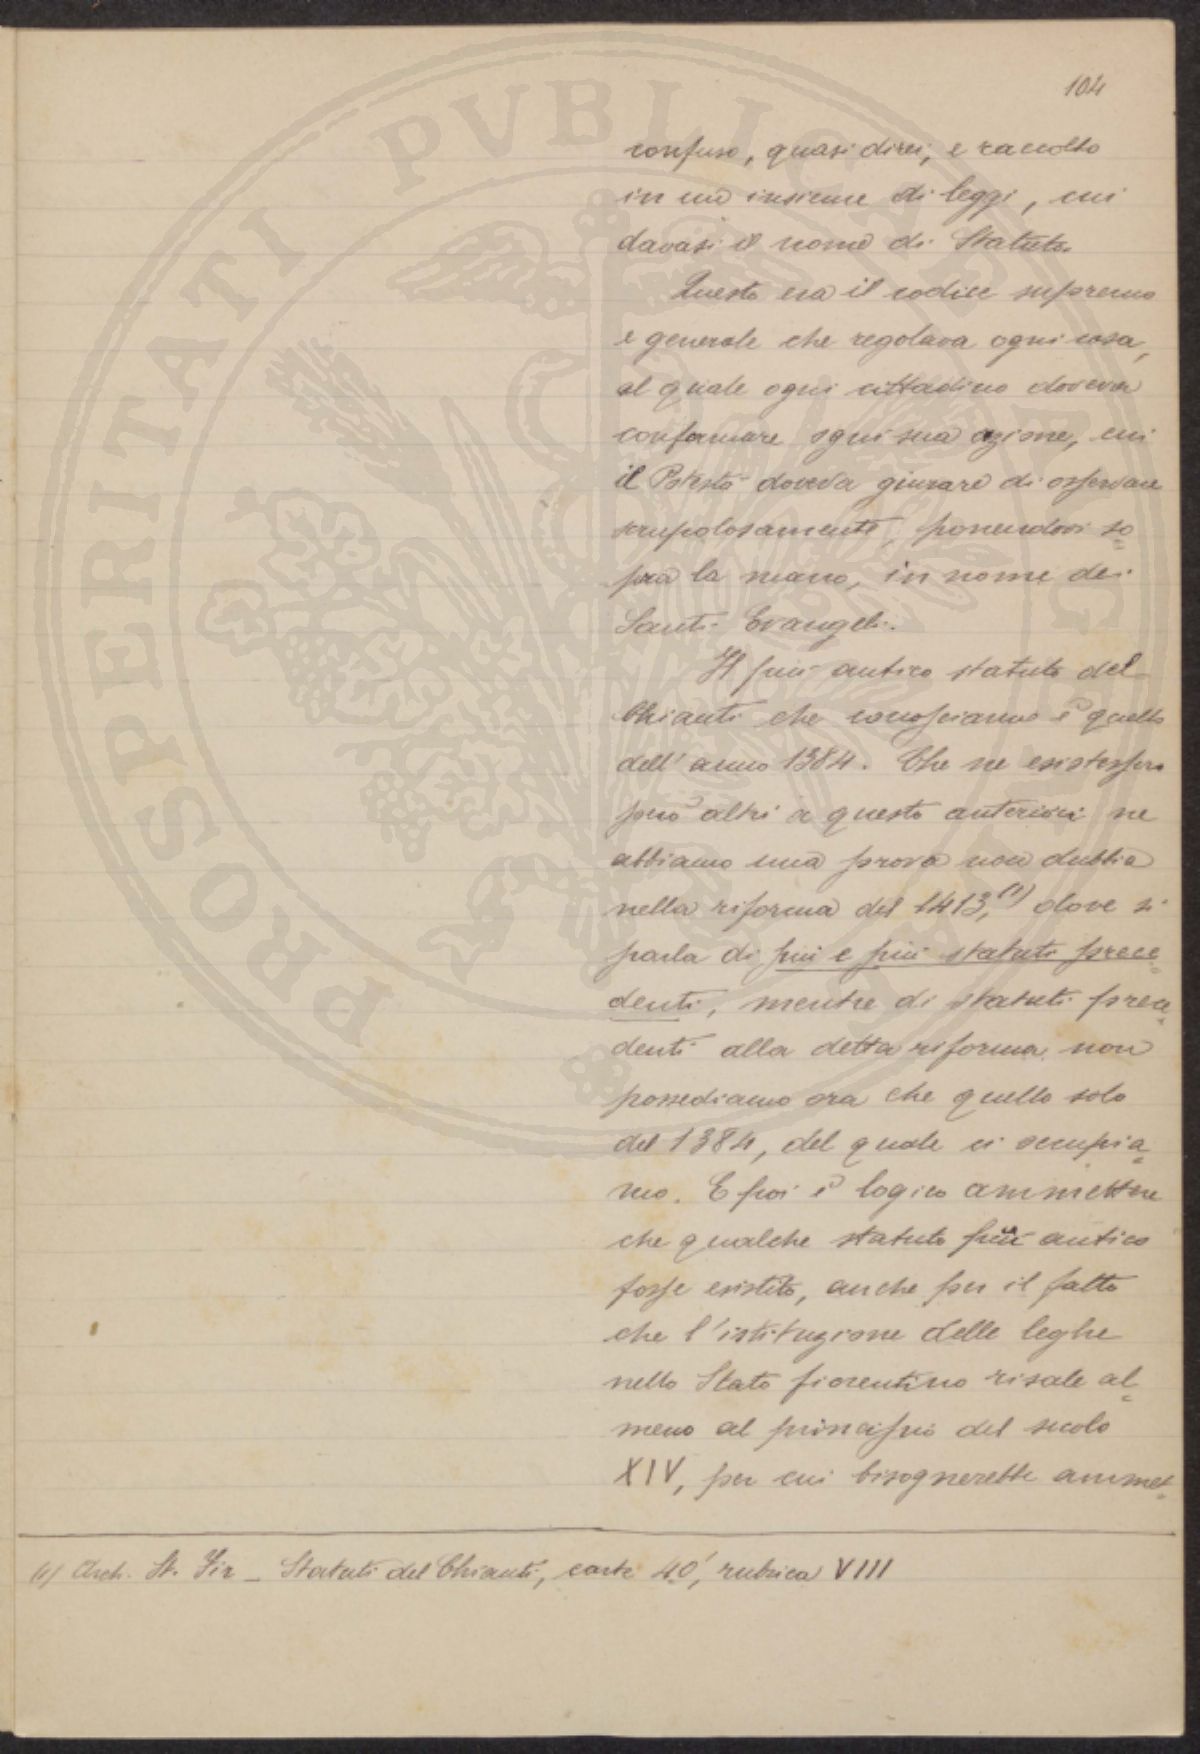 104
confuso, quasi direi, e raccolto
in un insieme di leggi, cui
davasi il nome di Statuto.
Questo era il codice supremo
e generale che regolava ogni cosa,
al quale ogni cittadino doveva
conformare ogni sua azione, cui
il Potestà doveva giurare di osservare
scrupolosamente, ponendovi so-
pra la mano, in nome dei
Santi Evangeli.
Il più antico statuto del
Chianti che conosciamo è quello
dell'anno 1384. Che ne esistessero
però altri a questo anteriori ne
abbiamo una prova non dubbia
nella riforma del 1413,(1) dove si
parla di più e più statuti prece-
denti, mentre di statuti prece-
denti alla detta riforma non
possediamo ora che quello solo
del 1384, del quale ci occupia-
mo. E poi è logico ammettere
che qualche statuto più antico
fosse esistito, anche per il fatto
che l'istituzione delle leghe
nello Stato fiorentino risale al-
meno al principio del secolo
XIV, per cui bisognerebbe ammet-
(1) Arch. St. Fir - Statuti del Chianti, carte 40', rubrica VIII
PROSPERITATI PVBLICAE AVGENDAE